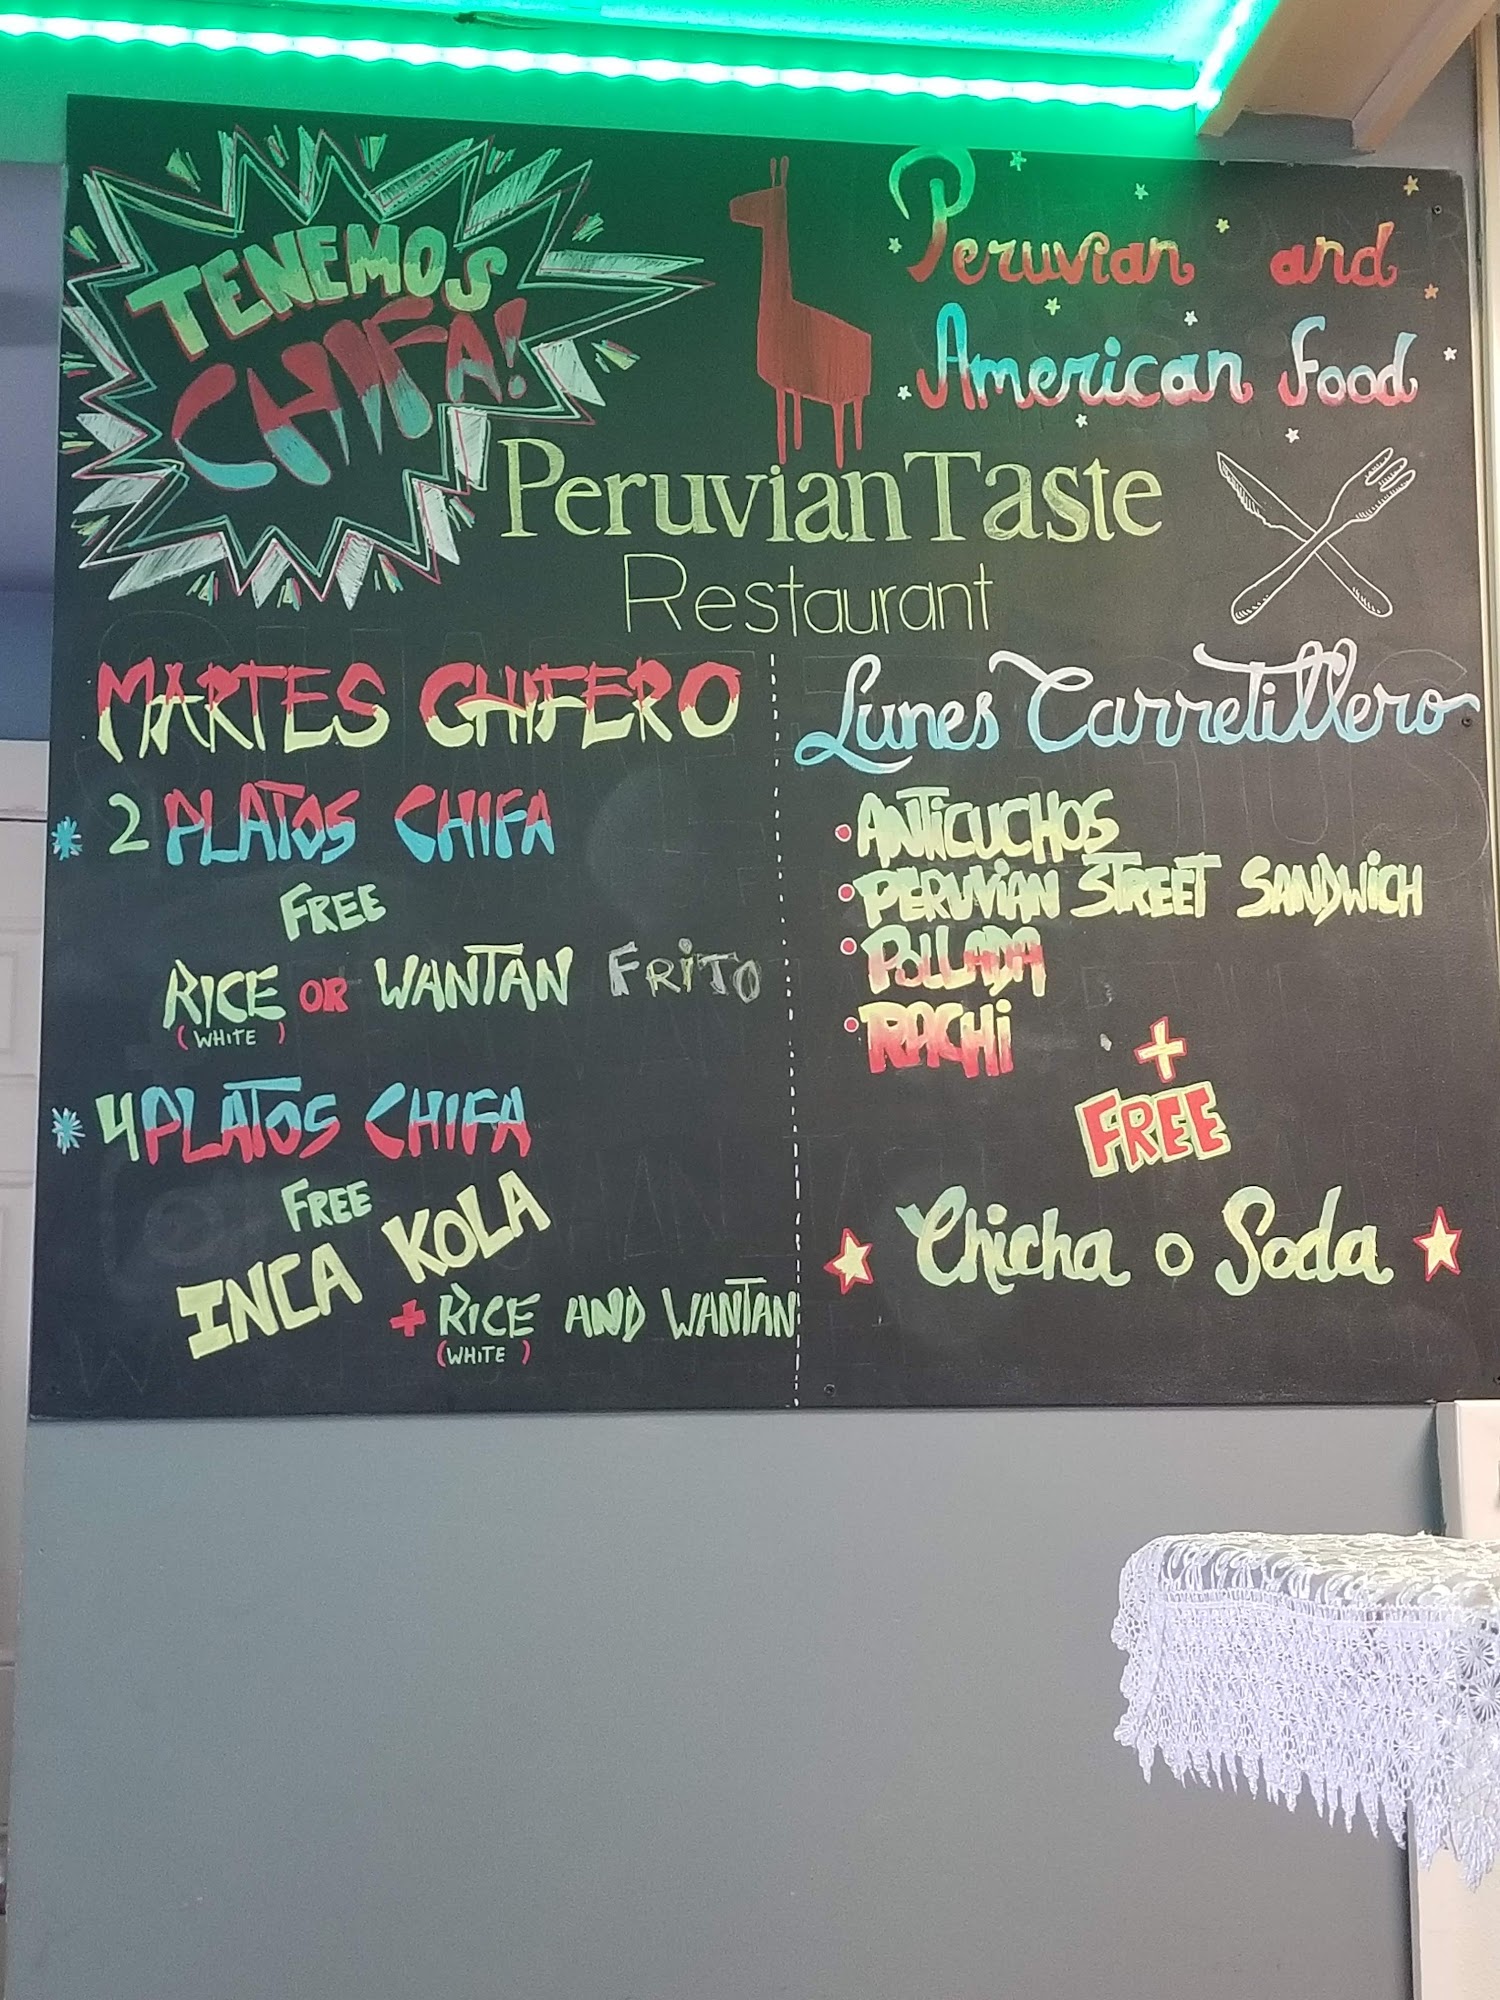 TENEMOS
CHIFA!
Peruvian and
American Food
PeruvianTaste
Restaurant
MARTES CHIFERO
* 2 PLATOS CHIFA
FREE
RICE OR WANTAN FRITO
(WHITE)
* 4 PLATOS CHIFA
FREE
INCA KOLA
+ RICE AND WANTAN
(WHITE)
Lunes Carretillero
• ANTICUCHOS
• PERUVIAN STREET SANDWICH
• POLLADA
• RACHI
+
FREE
Chicha o Soda